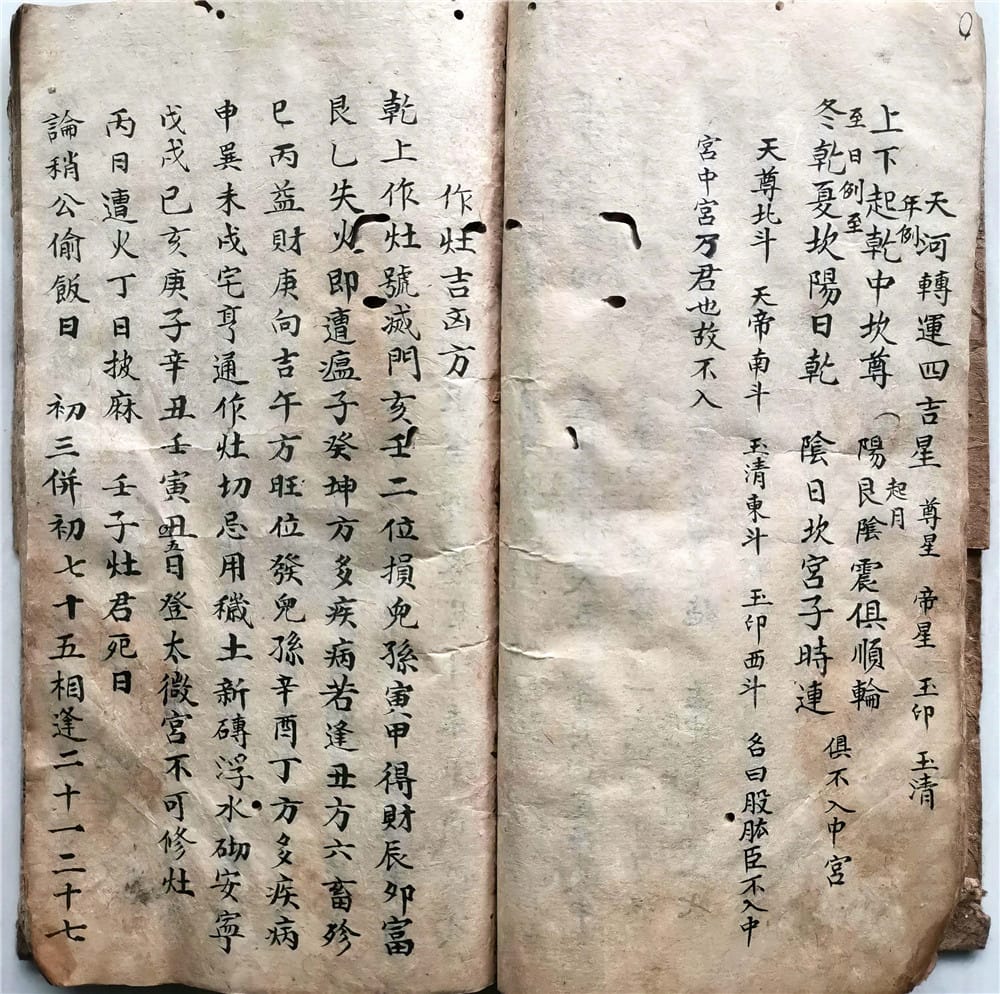 天河轉運四吉星 尊星 帝星 玉印 玉清
年例 起月
上下起乾中坎尊 陽艮陰震俱順輪
至日例至 俱不入中宮
冬乾夏坎陽日乾 陰日坎宮子時連
天尊北斗 天帝南斗 玉清東斗 玉印西斗 名曰股肱臣不入中
宮中宮乃君也故不入
作灶吉凶方
乾上作灶號滅門亥壬二位損兒孫寅甲得財辰卯富
艮乙失火即遭瘟子癸坤方多疾病若逢丑方六畜殄
巳丙益財庚向吉午方旺位發兒孫辛酉丁方多疾病
申巽未戌宅亨通作灶切忌用穢土新磚浮水砌安寧
戊戌己亥庚子辛丑壬寅丑五日登太微宮不可修灶
丙日遭火丁日披麻 壬子灶君死日
論稍公偷飯日 初三併初七十五相逢二十一二十七